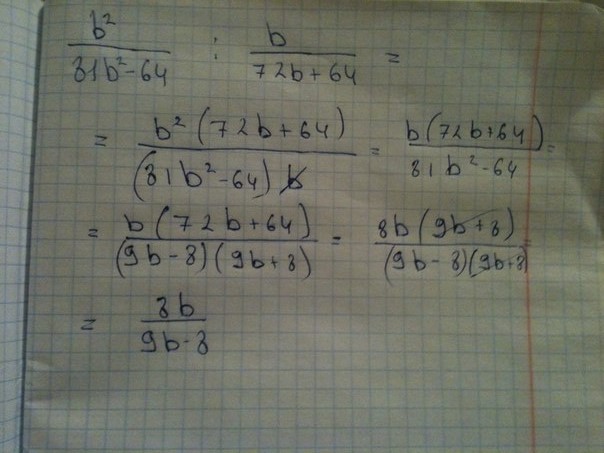 b²/(81b²-64) : b/(72b+64) =
= b²(72b+64)/((81b²-64)b) = b(72b+64)/(81b²-64) =
= b(72b+64)/((9b-8)(9b+8)) = 8b(9b+8)/((9b-8)(9b+8)) =
= 8b/(9b-8)